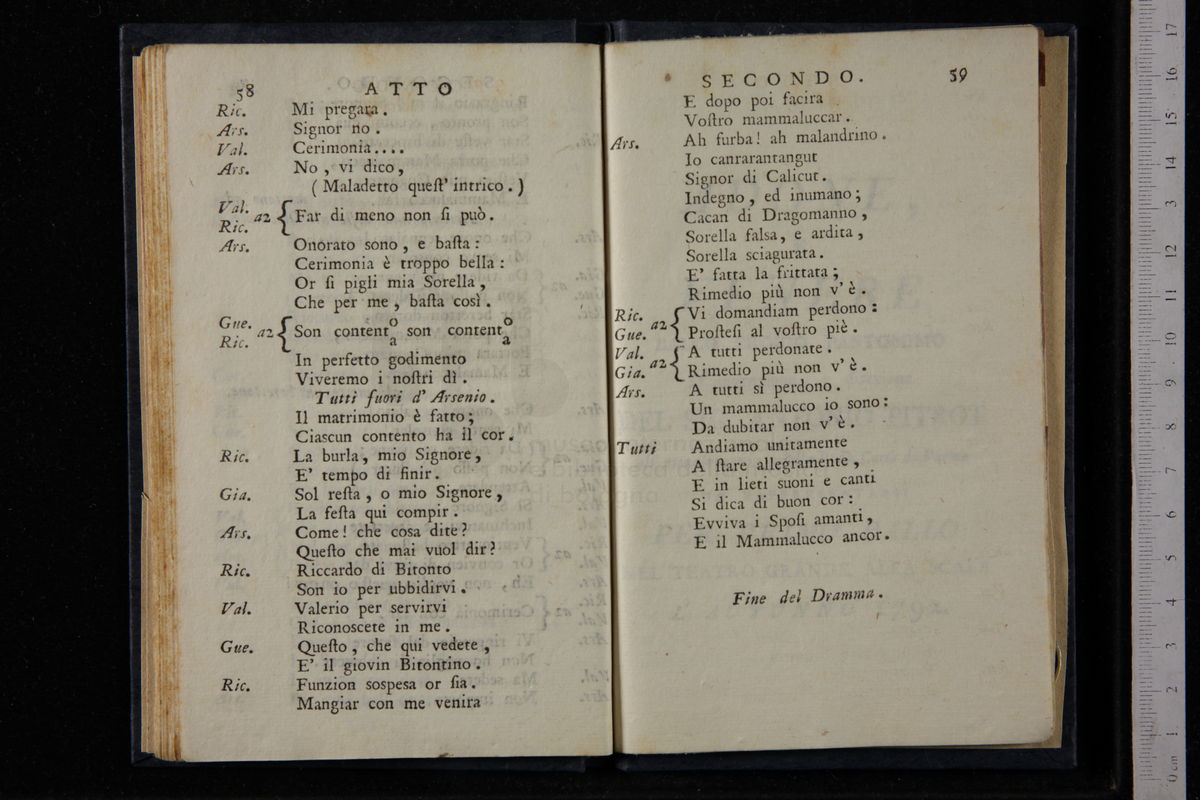 58 ATTO
Ric. Mi pregara.
Ars. Signor no.
Val. Cerimonia....
Ars. No, vi dico,
( Maladetto queſt' intrico. )
Val.
Ric. a2 { Far di meno non ſi può.
Ars. Onorato sono, e baſta:
Cerimonia è troppo bella:
Or ſi pigli mia Sorella,
Che per me, baſta così.
Gue.
Ric. a2 { Son content o/a son content o/a
In perfetto godimento
Viveremo i noſtri dì.
Tutti fuori d' Arsenio.
Il matrimonio è fatto;
Ciascun contento ha il cor.
Ric. La burla, mio Signore,
E' tempo di finir.
Gia. Sol reſta, o mio Signore,
La feſta qui compir.
Ars. Come! che cosa dite?
Queſto che mai vuol dir?
Ric. Riccardo di Bitonto
Son io per ubbidirvi.
Val. Valerio per servirvi
Riconoscete in me.
Gue. Queſto, che qui vedete,
E' il giovin Bitontino.
Ric. Funzion sospesa or ſia.
Mangiar con me venira
SECONDO. 59
E dopo poi facira
Voſtro mammaluccar.
Ars. Ah furba! ah malandrino.
Io canrarantangut
Signor di Calicut.
Indegno, ed inumano;
Cacan di Dragomanno,
Sorella falsa, e ardita,
Sorella sciagurata.
E' fatta la frittata;
Rimedio più non v' è.
Ric. Vi domandiam perdono:
Gue. a2 { Proſteſi al voſtro piè.
Val. A tutti perdonate.
Gia. a2 { Rimedio più non v' è.
Ars. A tutti sì perdono.
Un mammalucco io sono:
Da dubitar non v' è.
Tutti Andiamo unitamente
A ſtare allegramente,
E in lieti suoni e canti
Si dica di buon cor:
Evviva i Spoſi amanti,
E il Mammalucco ancor.
Fine del Dramma.